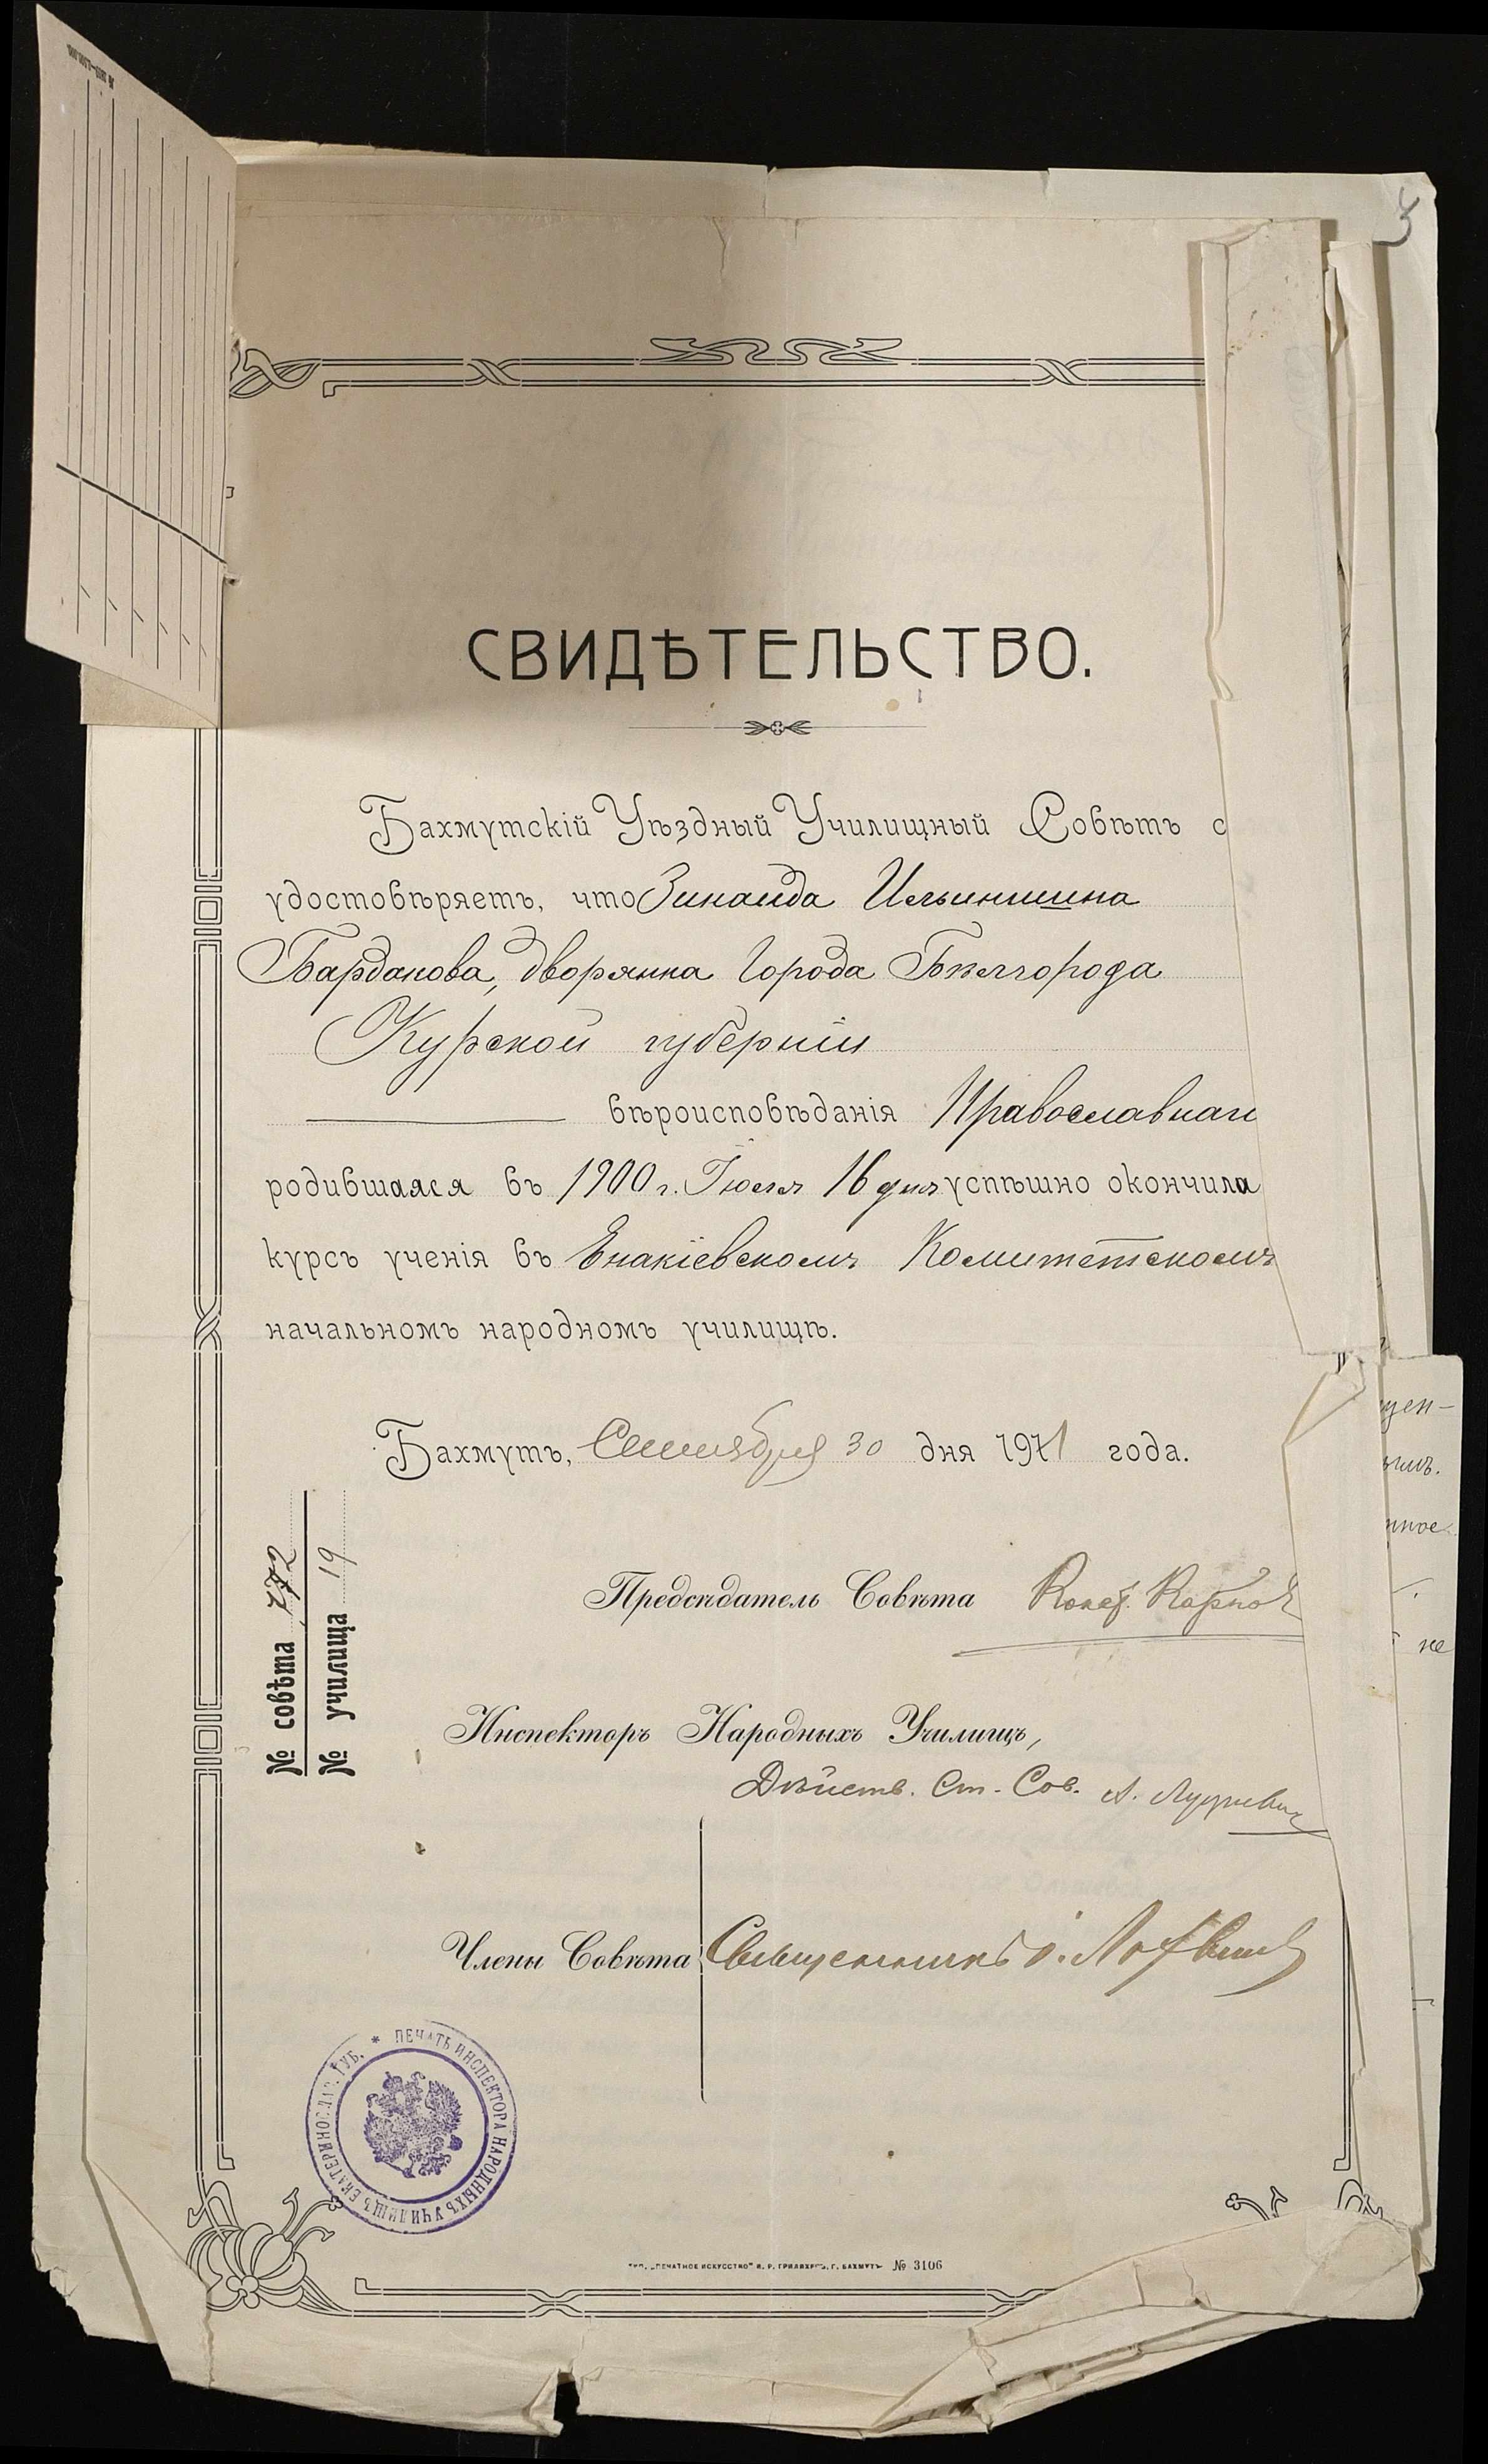 СВИДѢТЕЛЬСТВО.
Бахмутскій Уѣздный Училищный Совѣтъ с
удостовѣряетъ, что Зинаида Ильинишна
Бардакова, дворянка города Бѣлгорода
Курской губерніи
вѣроисповѣданія Православнаг
родившаяся въ 1900 г. Іюля 16 дня успѣшно окончила
курсъ ученія въ Енакіевскомъ Комитетскомъ
начальномъ народномъ училищѣ.
Бахмутъ, Сентября 30 дня 1911 года.
№ совѣта 772
№ училища 19
Предсѣдатель Совѣта Конст. Карпов
Инспекторъ Народныхъ Училищъ,
Дѣйств. Ст. Сов. А.
Члены Совѣта Священникъ І.
* ПЕЧАТЬ ИНСПЕКТОРА НАРОДНЫХЪ УЧИЛИЩЪ ЕКАТЕРИНОСЛАВ. ГУБ.
ТИП. „ПЕЧАТНОЕ ИСКУССТВО" И. Р. ГРИЛИХЕСЪ, Г. БАХМУТЪ № 3106
щен-
нное
не